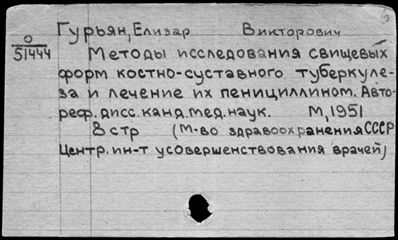 Гурьян, Елизар Викторович
О
51444
Методы исследования свищевых
форм костно-суставного туберкуле-
за и лечение их пенициллином. Авто-
реф. дисс. канд. мед. наук. М, 1951
8 стр (М-во здравоохранения СССР
Центр. ин-т усовершенствования врачей)